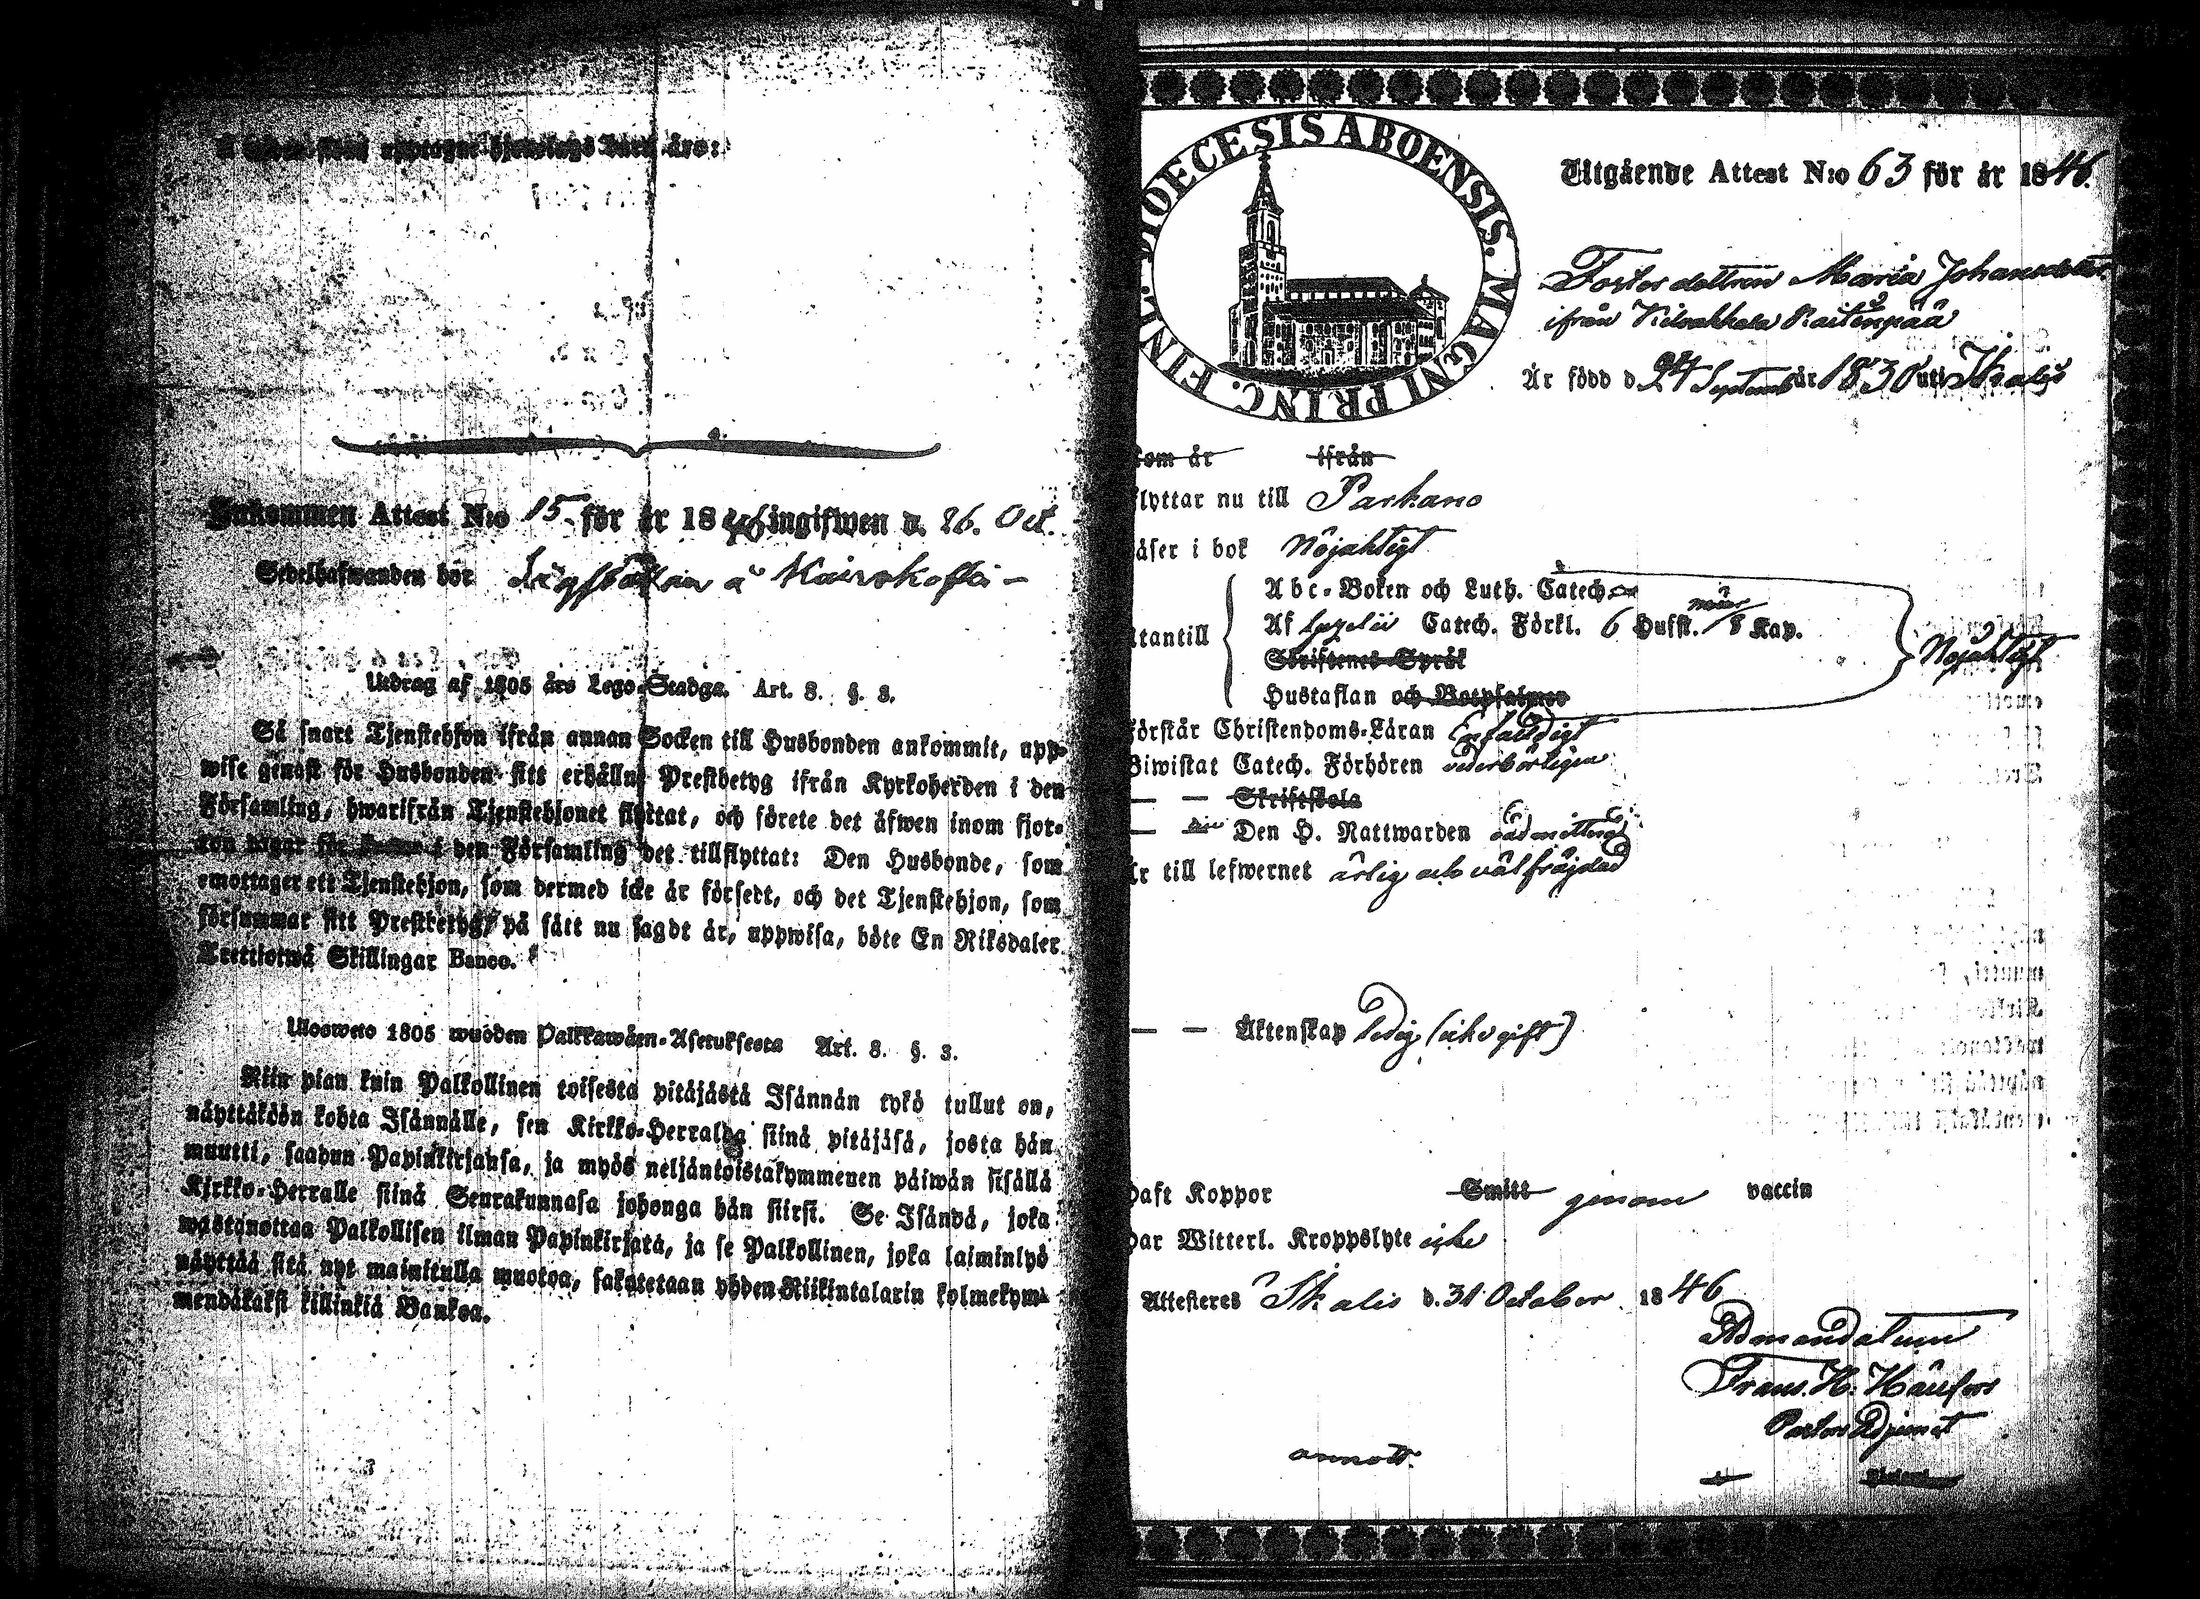 upptages
års:
Inkommen Attest N:o 15 för år 18 ingifwen d. 26. Oct.
Sedelhafwanden bör å Kairokoski
Utdrag af 1805 års Lego-Stadga. Art. 8. §. 3.
Så snart Tjenstehjon ifrån annan Socken till Husbonden ankommit, upp-
wise genast för Husbonden sitt erhållne Prestbetyg ifrån Kyrkoherden i den
Församling, hwarifrån Tjenstehjonet flyttat, och förete det äfwen inom fjor-
ton dagar för i den Församling det tillflyttat: Den Husbonde, som
emottager ett Tjenstehjon, som dermed icke är försedt, och det Tjenstehjon, som
försummar sitt Prestbetyg, på sätt nu sagdt är, uppwisa, böte En Riksdaler
Trettiotwå Skillingar Banco.
Ulosweto 1805 wuoden Palkkawäen-Asetuksesta Art. 8. §. 3.
Niin pian kuin Palkollinen toisesta pitäjästä Isännän tykö tullut on,
näyttäköön kohta Isännälle, sen Kirkko-Herralda siinä pitäjäsä, josta hän
muutti, saadun Papinkirjansa, ja myös neljäntoistakymmenen päiwän sisällä
Kirkko-Herralle siinä Seurakunnasa johonga hän siirsi. Se Isändä, joka
wastanottaa Palkollisen ilman Papinkirjata, ja se Palkollinen, joka laiminlyö
näyttää sitä nyt mainitulla muotoa, sakotetaan yhden Riikintalarin kolmekym-
mendäkaksi killinkiä Bankoa.
FINL. DIOECESIS ABOENSIS. MAGNI PRINC.
Utgående Attest N:o 63 för år 1846.
Fosterdottren Maria Johansdotter
ifrån Kilvakkala Raitenpää
Är född d. 24 September år 1830 uti Ikalis
kom år ifrån
flyttar nu till Parkano
läser i bok Nöjaktigt
utantill
Abc-Boken och Luth. Catech.
Af Catech. Förkl. 6 Hufst. 8 Kap.
Skriftenes Språk
Hustaflan och Botpsalmer
Nöjaktigt
förstår Christendoms-Läran Enfaldigt
Biwistat Catech. Förhören vederbörligen
— — Skriftskola
— — Den H. Nattwarden oadmitterad
Är till lefwernet ärlig och välfräjdad
— — Äktenskap Ledig (icke gift)
haft Koppor Smitt genom vaccin
har Witterl. Kroppslyte icke
Attesteres Ikalis d. 31 October 1846
Admandatum
Frans. H.
Pastors Adjunct
annott.